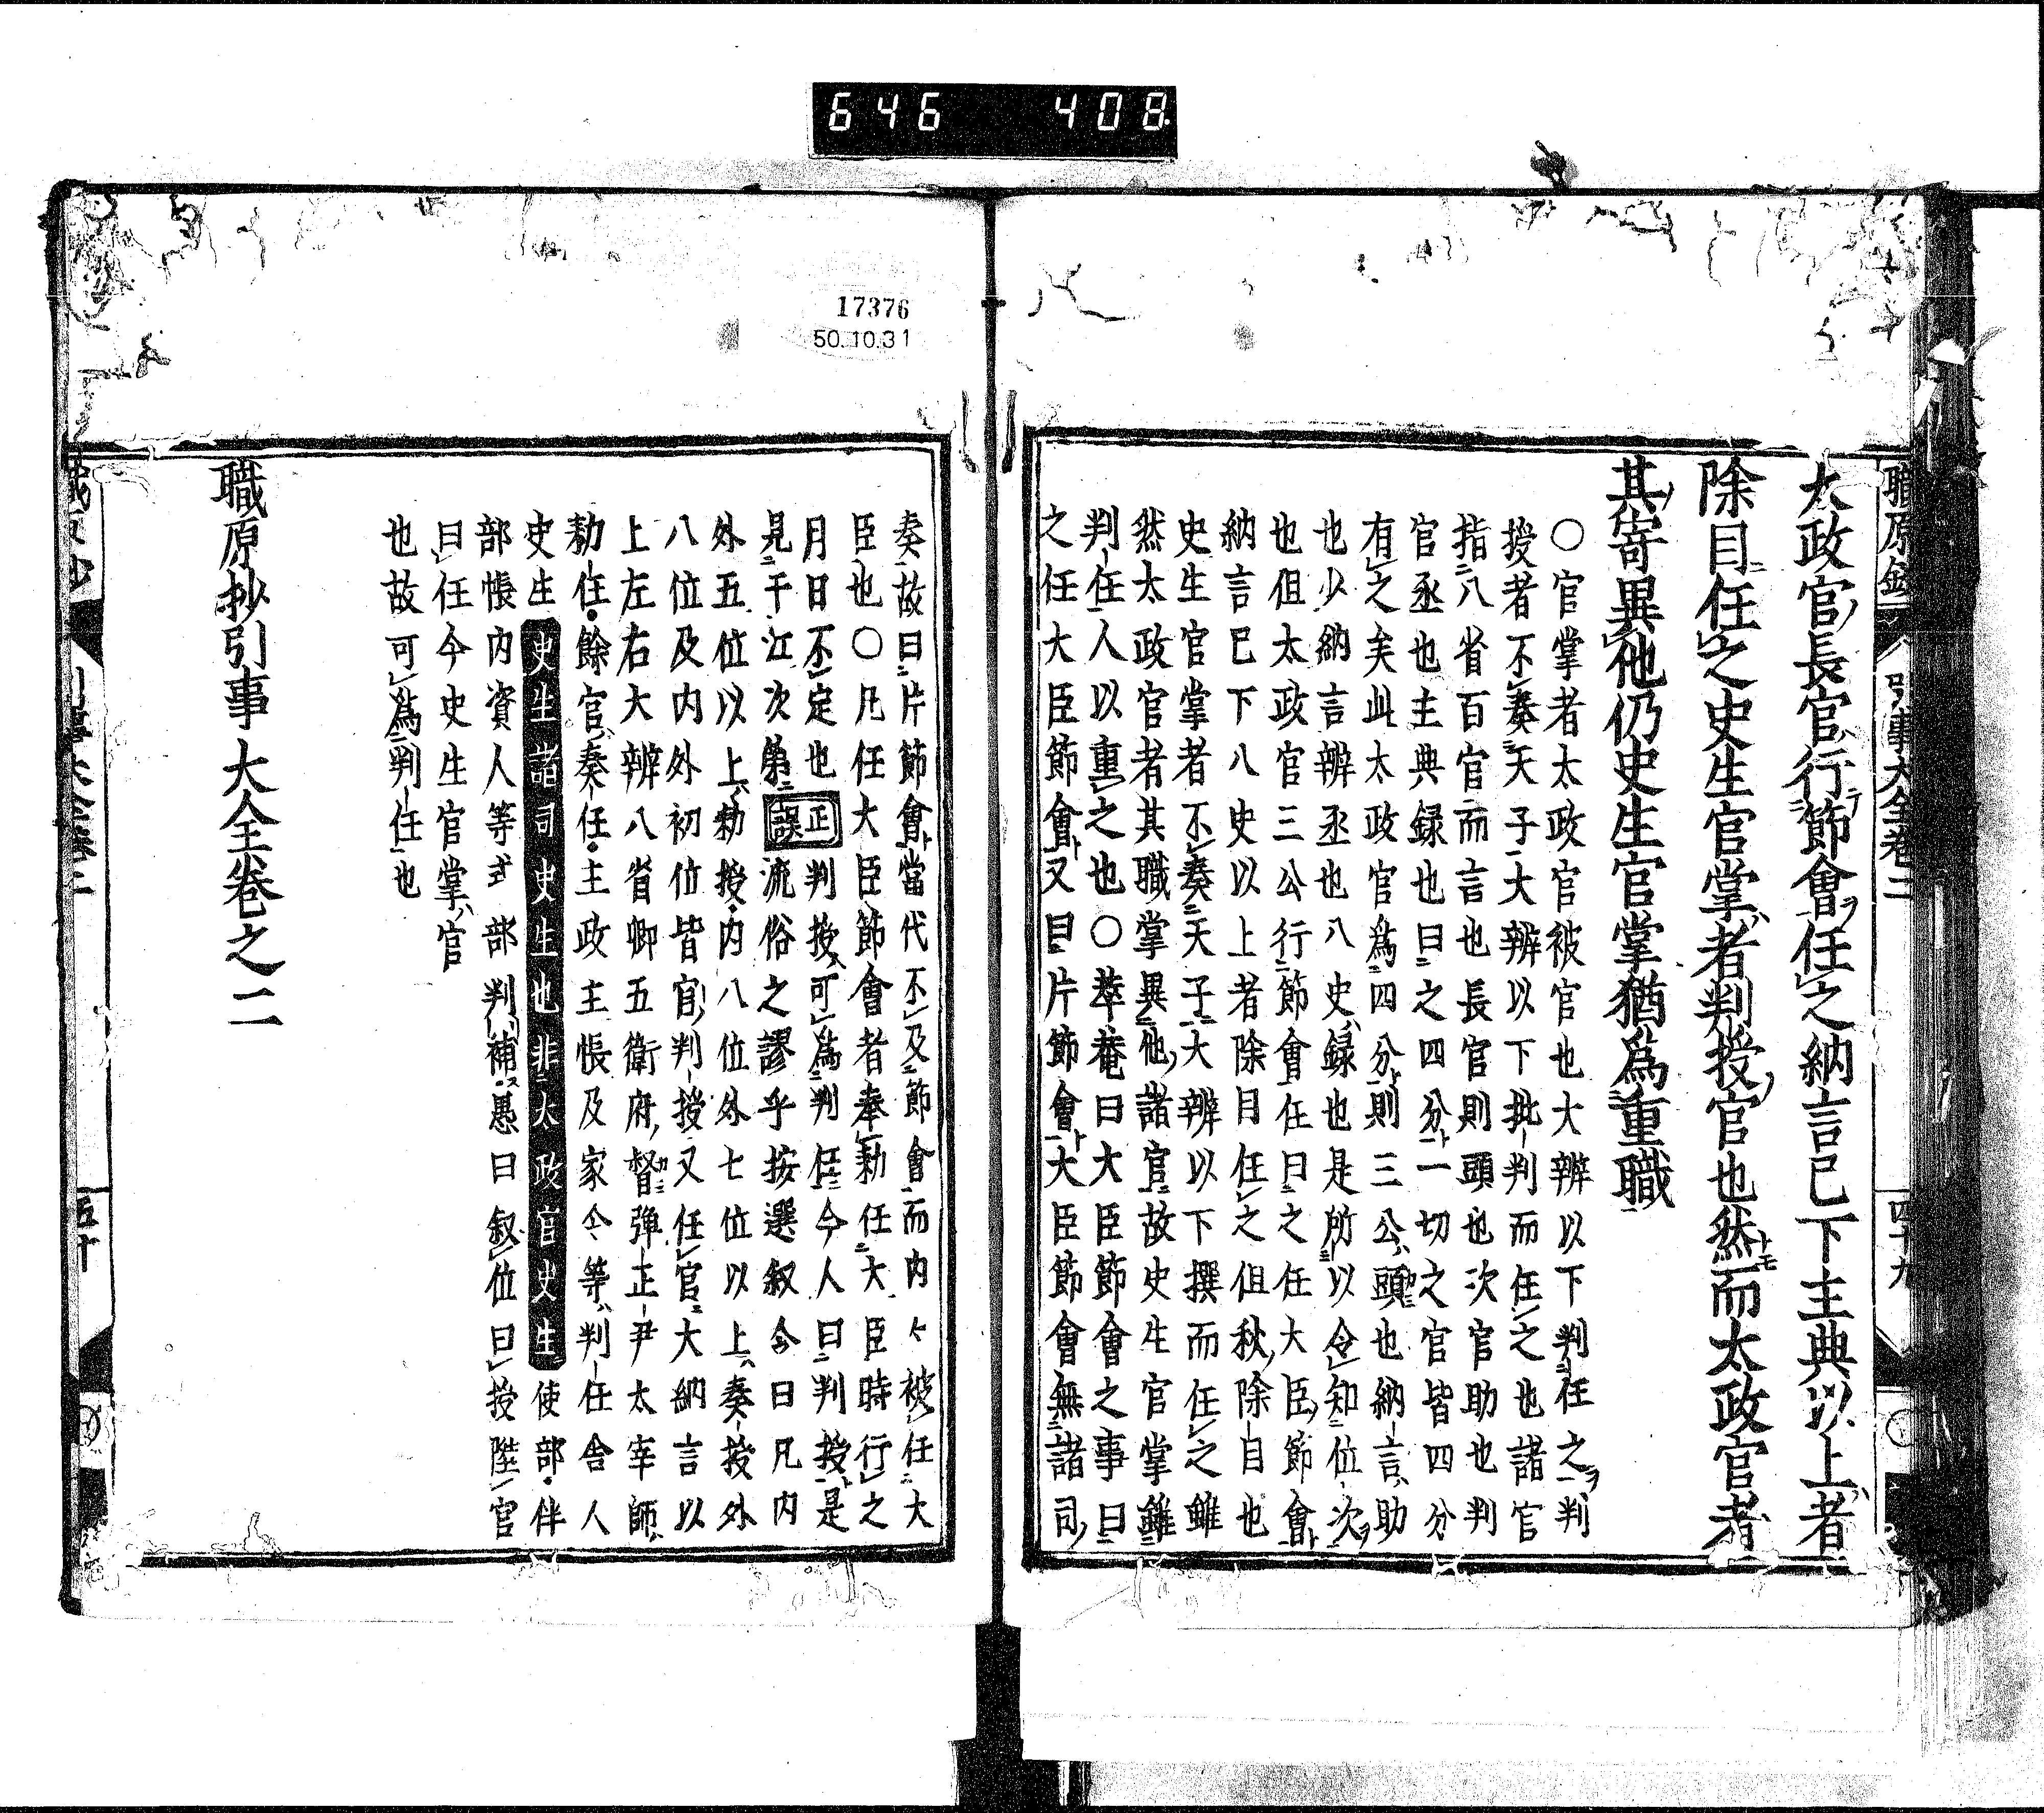 646 408
職原鈔 引事大全卷二 四十九
太政官長官行節會任之納言已下主典以上者
除目任之史生官掌者判授官也然而太政官者
其寄異他仍史生官掌猶爲重職
○官掌者太政官被官也大辨以下判任之判
授者不奏天子大辨以下批判而任之也諸官
指八省百官而言也長官則頭也次官助也判
官丞也主典録也曰之四分一切之官皆四分
有之矣此太政官爲四分則三公頭也納言助
也少納言辨丞也八史録也是所以令知位次
也但太政官三公行節會任曰之任大臣節會
納言已下八史以上者除目任之但秋除目也
史生官掌者不奏天子大辨以下撰而任之雖
然太政官者其職掌異他諸官故史生官掌雖
判任人以重之也○莘菴曰大臣節會之事曰
之任大臣節會又曰片節會大臣節會無諸司
17376
50.10.31
奏故曰片節會當代不及節會而内々被任大
臣也○凡任大臣節會者奉勅任大臣時行之
月日不定也正誤判授可爲判任今人曰判授是
見于江次第流俗之謬乎按選叙令曰凡内
外五位以上勅授内八位外七位以上奏授外
八位及内外初位皆官判授又任官大納言以
上左右大辨八省卿五衛府督彈正尹太宰師
勅任餘官奏任主政主帳及家令等判任舎人
史生史生諸司史生也非太政官史生使部伴
部帳内資人等式部判補愚曰叙位曰授陞官
曰任今史生官掌官
也故可爲判任也
職原抄引事大全卷之二
五十